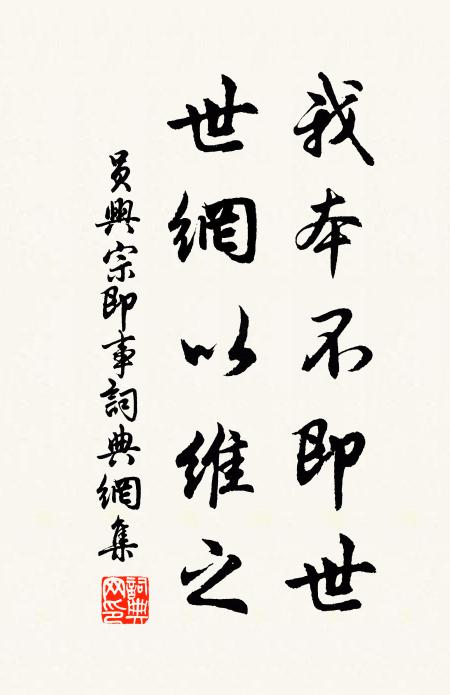 我本不即世
世網以維之
員興宗即事詞典網集
詞典
网印